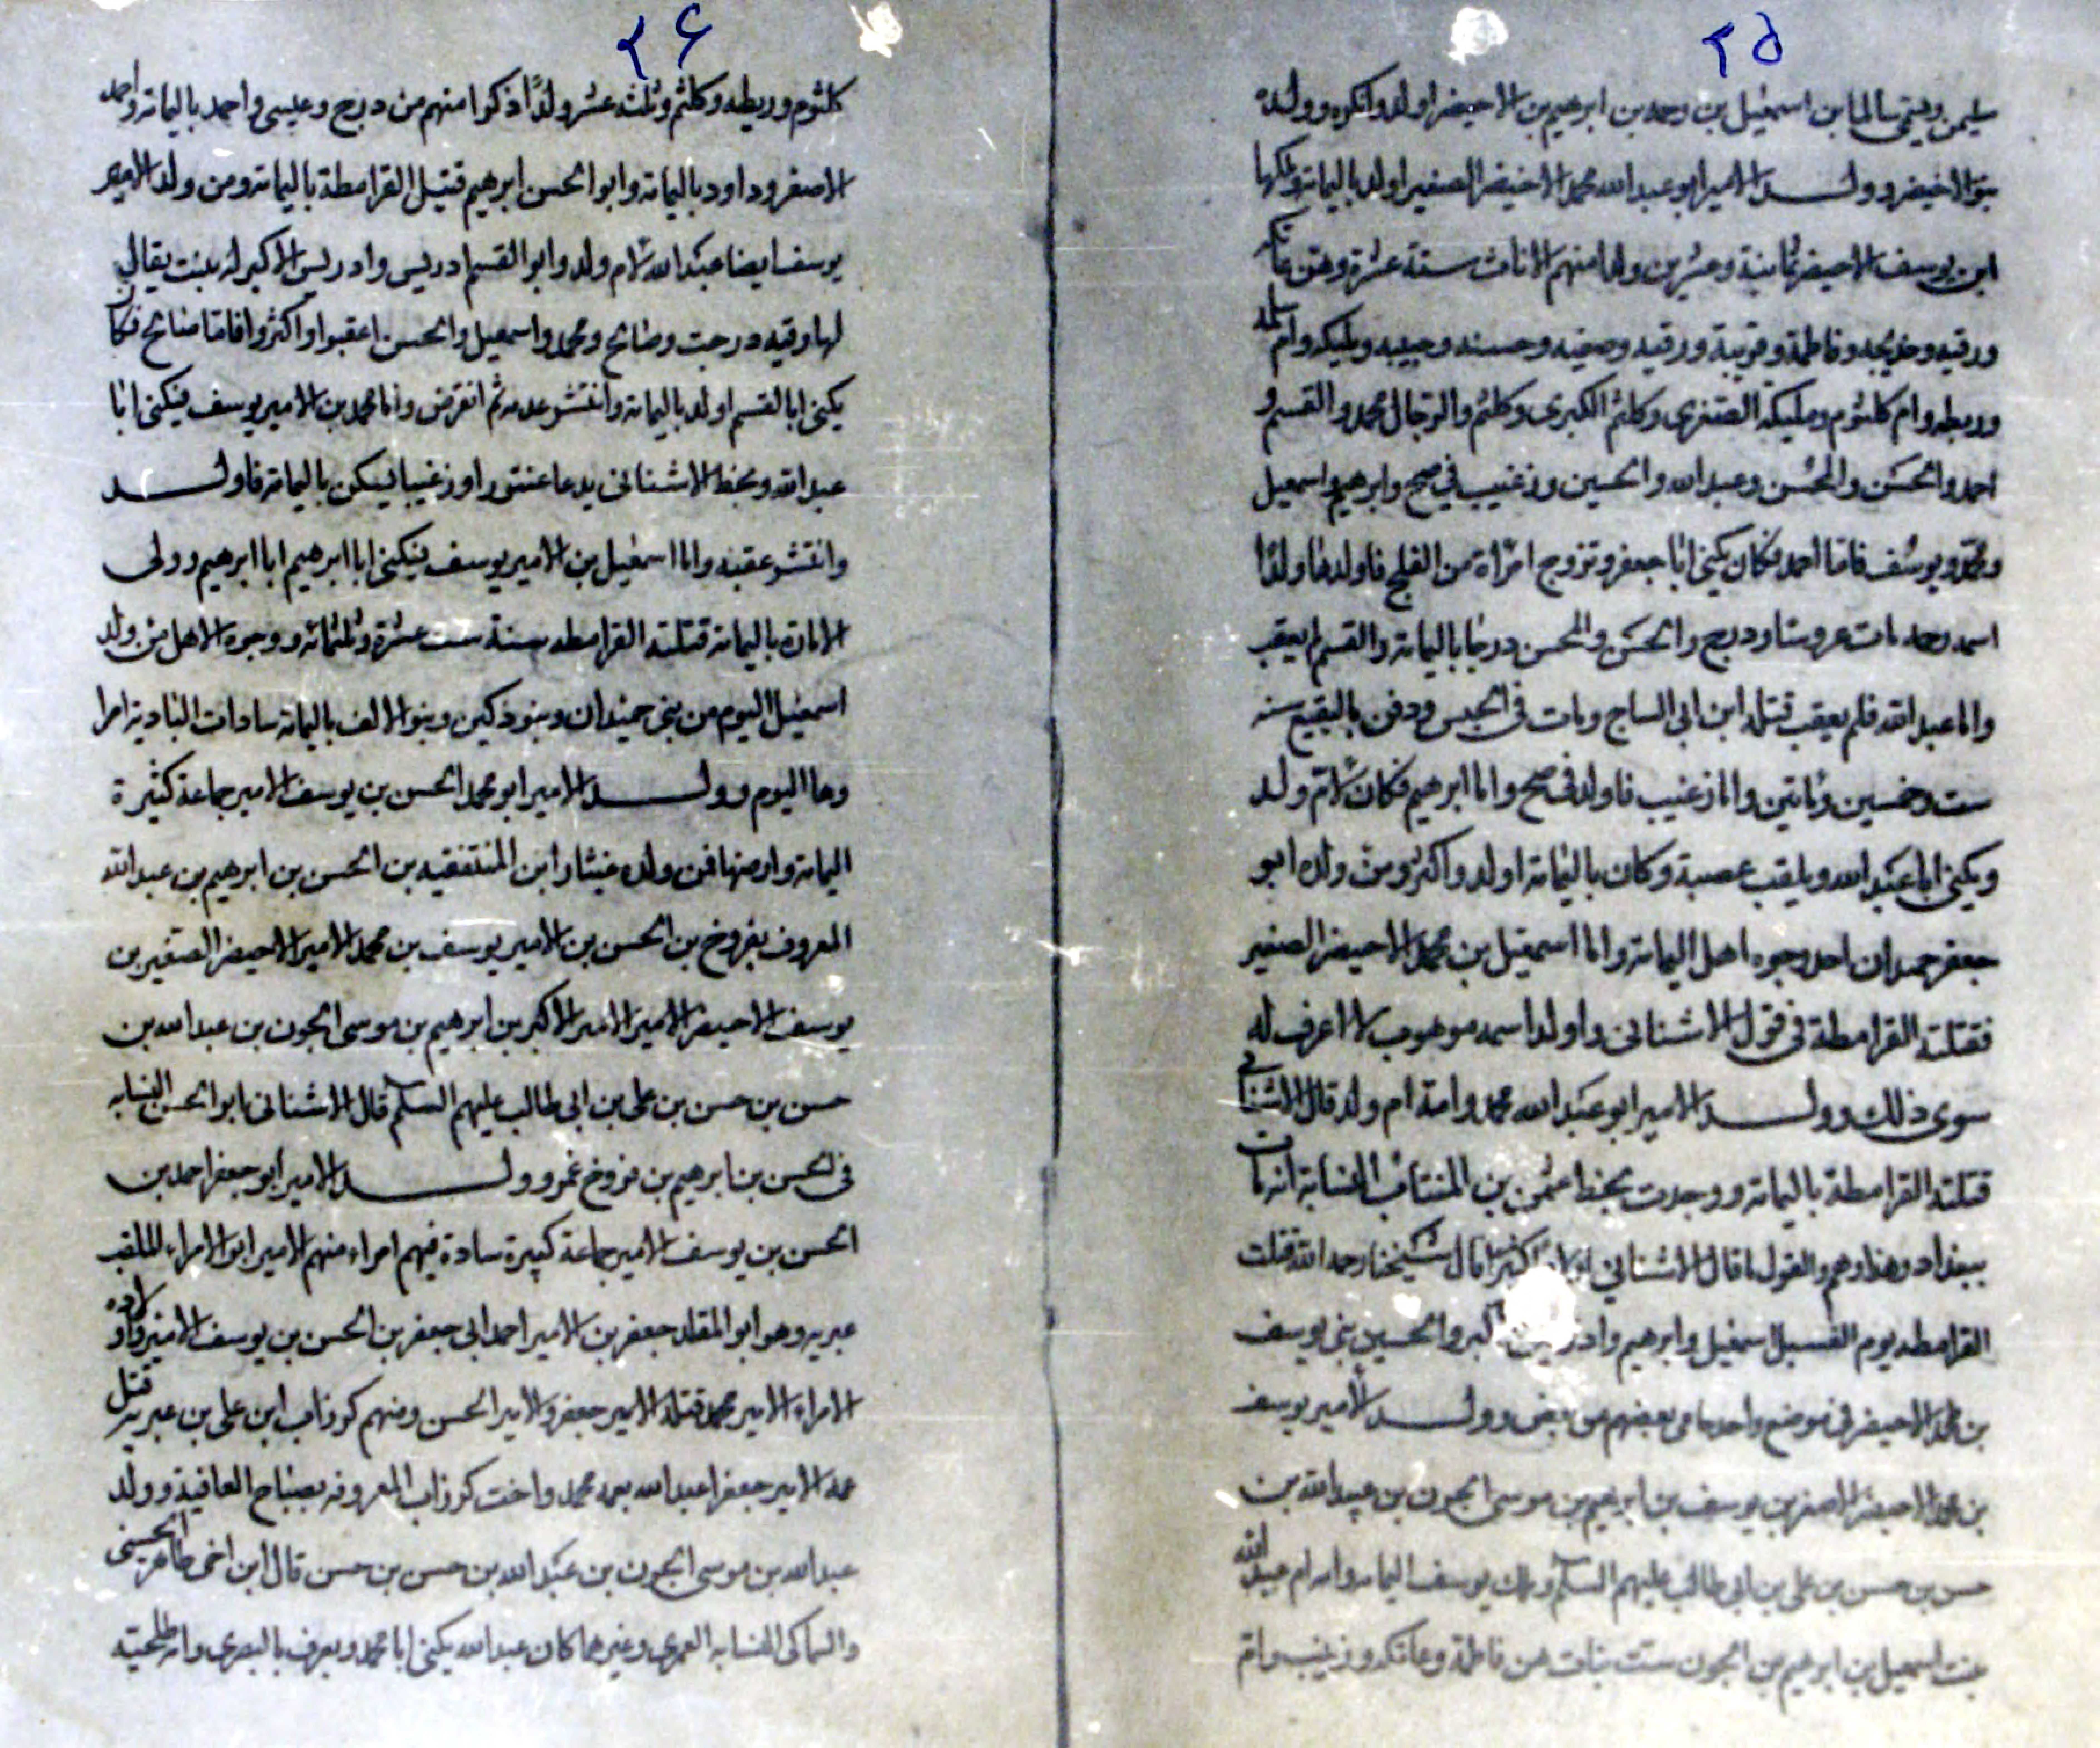 ٢٥
سليمن ويتمى سالما بن اسمعيل بن وحمد بن ابرهيم بن الاحيضر اولد واكثره وولده
بنو الاخيضر وولد الامير ابو عبد الله محمد الاخيضر الصغير اولد باليمامة وملكها
ابن يوسف الاحيضر ثمانية وعشرين ولدا منهم الاناث ستة عشرة وهن عاتكه
ورقيه وخديجه وفاطمة وقريبة ورقيه وصفيه وحسنه وحبيبه ومليكه وام سلمه
وريطه وام كلثوم ومليكه الصغرى وكلثم الكبرى وكلثم والرجال محمد والقسم و
احمد والحسن والمحسن وعبد الله والحسين وزغيب في صح وابرهيم واسمعيل
ومحمد ويوسف فاما احمد فكان يكنى ابا جعفر وتزوج امراة من الفلج فاولدها ولدا
اسمه رحمه مات عروسا ودرج والحسن والمحسن درجا باليمامة والقسم لم يعقب
واما عبد الله فلم يعقب قتله ابن ابى الساج ومات فى الحبس ودفن بالبقيع سنه
ست وخمسين ومايتين واما زغيب فاولد فى صح واما ابرهيم فكان لام ولد
ويكنى ابا عبد الله ويلقب عصبة وكان باليمامة اولد واكثر ومن ولده ابو
جعفر حمدان احد وجوه اهل اليمامة واما اسمعيل بن محمد الاحيضر الصغير
فقتلته القرامطة فى قول الاشنانى واولدا اسمه موهوب لا اعرف له
سوى ذلك وولد الامير ابو عبد الله محمد وامه ام ولد قال الاشنانى
قتلته القرامطة باليمامة ووجدت بخط اعثمن بن المنتاب النسابة انه مات
ببغداد وهذا وهم والقول ما قال الاشنانى قال شيخنا رحمه الله قتلت
القرامطه يوم الفسيل اسمعيل وابرهيم وادريس الاكبر والحسين بنى يوسف
بن محمد الاحيضر فى موضع واحد حامى بعضهم عن بعض وولد الامير يوسف
بن محمد الاحيضر الاصغر بن يوسف بن ابرهيم بن موسى الجون بن عبد الله بن
حسن بن حسن بن على بن ابى طالب عليهم السلم وملك يوسف اليمامه وامه ام عبد الله
بنت اسمعيل بن ابرهيم بن الجون ست بنات هن فاطمة وعاتكه وزينب وام
٢٦
كلثوم وريطه وكلثم وثلث عشر ولدا ذكرا منهم من درج وعيسى واحمد باليمامه واحمد
الاصغر وداود باليمامه وابو الحسن ابرهيم قتيل القرامطة باليمامة ومن ولد الامير
يوسف ايضا عبد الله لام ولد وابو القسم ادريس وادريس الاكبر له بنت يقال
لها رقيه درجت وصالح ومحمد واسمعيل والحسن اعقبوا واكثروا فاما صالح فكان
يكنى ابا القسم اولد باليمامة وانتشر عدده ثم انقرض واما محمد بن الامير يوسف فيكنى ابا
عبد الله وبخط الاشنانى يدعا عنتور او زغيبا ليسكن باليمامة فاولد
وانتشر عقبه واما اسمعيل بن الامير يوسف فيكنى ابا ابرهيم ابا ابرهيم وولى
الامارة باليمامة قتلته القرامطه سنة ست عشرة وثلثمائه ووجوه الاهل من ولد
اسمعيل اليوم من بنى حميدان وبنو ذكين وبنو الالف باليمامة سادات البادية امرا
وها اليوم وولد الامير ابو محمد الحسن بن يوسف الامير جماعة كثيرة
اليمامة وارضها فمن ولده ابن المنتفقيه بن الحسن بن ابرهيم بن عبد الله
المعروف بفروخ بن الحسن بن الامير يوسف بن محمد الامير الاحيضر الصغير بن
يوسف الاحيضر الامير الامير الاكبر بن ابرهيم بن موسى الجون بن عبد الله بن
حسن بن حسن بن على بن ابى طالب عليهم السلم قال الاشنانى ابو الحسن النسابه
فى الحسن بن ابرهيم بن فروخ غمر وولد الامير ابو جعفر احمد بن
الحسن بن يوسف الامير جماعة كبيرة سادة فيهم امراء منهم الامير ابو الامراء الملقب
عبريه وهو ابو المقلد جعفر بن الامير احمد ابى جعفر بن الحسن بن يوسف الامير واولاده
الامراء الامير محمد قتله الامير جعفر والامير الحسن ومنهم كرزاب ابن على بن عبريه قتل
عمه الامير جعفر اعبد الله بعمه محمد واخت كرزاب المعروفه بصباح العافية وولد
عبد الله بن موسى الجون بن عبد الله بن حسن بن حسن قال ابن اخى طاهر الحسنى
والسماكى النسابه العمرى وغيرهما كان عبد الله يكنى ابا محمد ويعرف بالبصرى وامه طلحيه